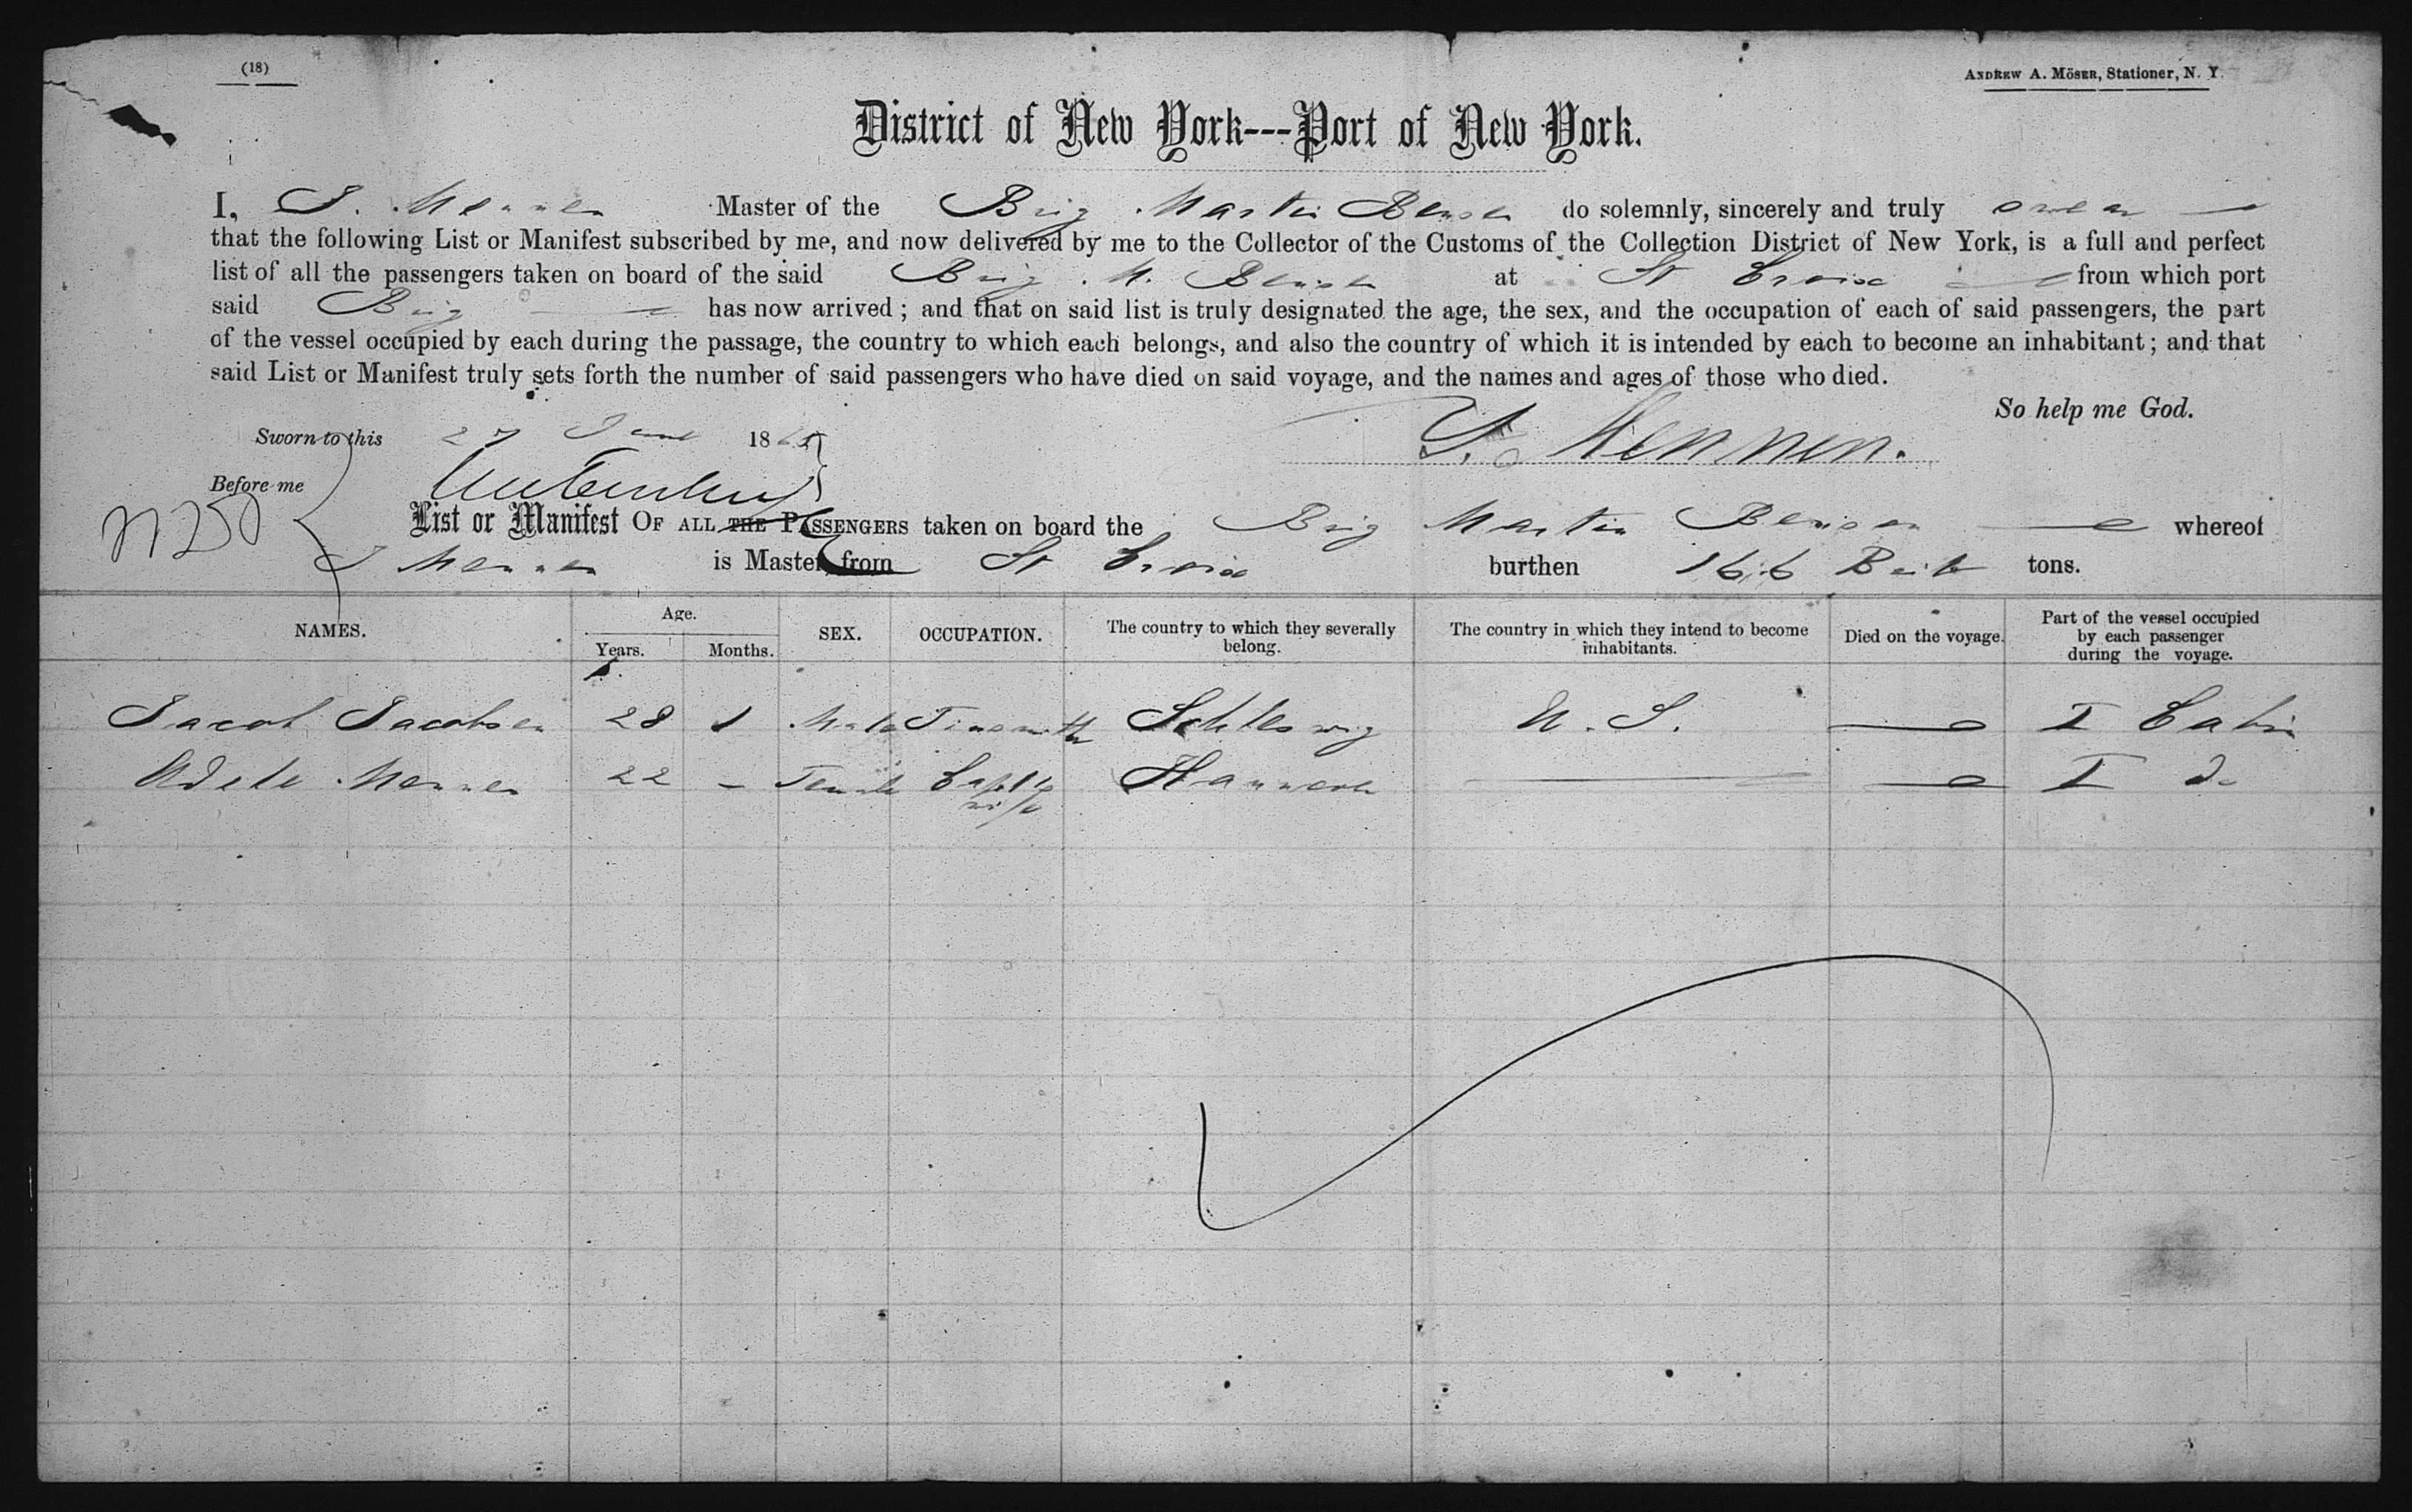 (18)
ANDREW A. MÖSER, Stationer, N. Y.
District of New York---Port of New York.
I, Mennen Master of the Brig Martin do solemnly, sincerely and truly swear
that the following List or Manifest subscribed by me, and now delivered by me to the Collector of the Customs of the Collection District of New York, is a full and perfect
list of all the passengers taken on board of the said Brig M. at St Croix from which port
said Brig has now arrived; and that on said list is truly designated the age, the sex, and the occupation of each of said passengers, the part
of the vessel occupied by each during the passage, the country to which each belongs, and also the country of which it is intended by each to become an inhabitant; and that
said List or Manifest truly sets forth the number of said passengers who have died on said voyage, and the names and ages of those who died.
So help me God.
Sworn to this 27 June 18
Mennen.
Before me
N 250
List or Manifest OF ALL THE PASSENGERS taken on board the Brig Martin whereof
Mennen is Master from St Croix burthen 166 tons.
NAMES. Age. Years. Months. SEX. OCCUPATION. The country to which they severally belong. The country in which they intend to become inhabitants. Died on the voyage. Part of the vessel occupied by each passenger during the voyage.
Jacob Jacobsen 28 1 Male Tinsmith Schleswig U. S. — I Cabin
Adele Mennen 22 – Female Capt wife Hannover — — I do